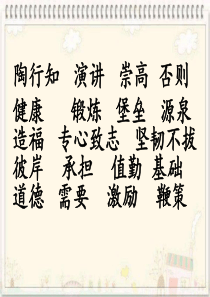 陶行知 演讲 崇高 否则
健康 锻炼 堡垒 源泉
造福 专心致志 坚韧不拔
彼岸 承担 值勤 基础
道德 需要 激励 鞭策